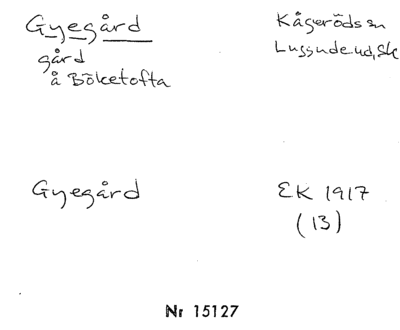 Gyegård
Kågeröds sn
gård
Luggude hd, Sk
å Böketofta
Gyegård
EK 1917
(13)
Nr 15127